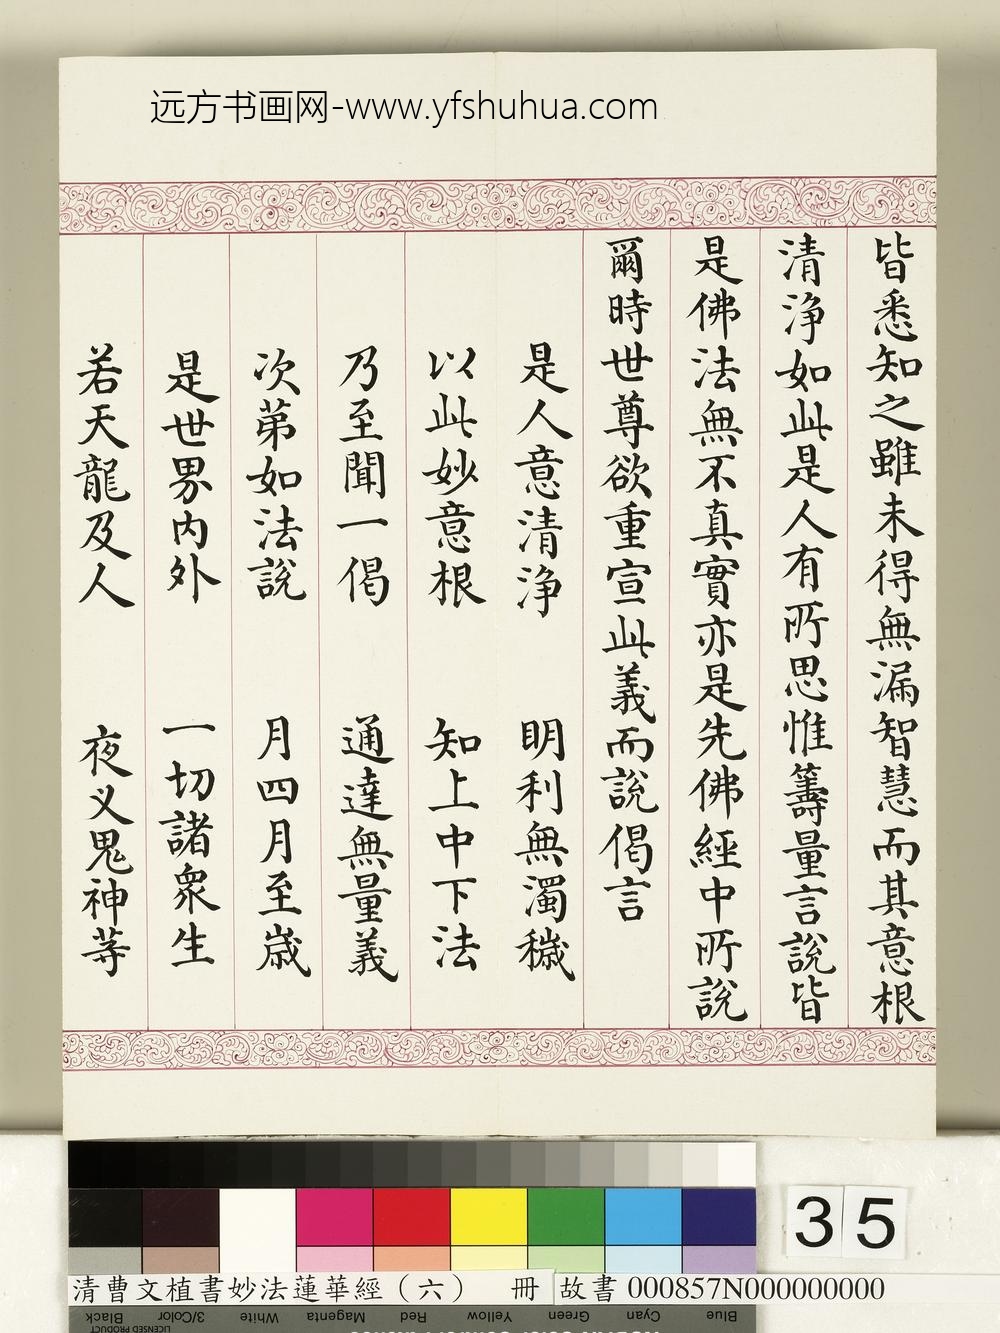 远方书画网-www.yfshuhua.com
皆悉知之雖未得無漏智慧而其意根
清淨如此是人有所思惟籌量言說皆
是佛法無不真實亦是先佛經中所說
爾時世尊欲重宣此義而說偈言
是人意清淨 明利無濁穢
以此妙意根 知上中下法
乃至聞一偈 通達無量義
次第如法說 月四月至歲
是世界內外 一切諸衆生
若天龍及人 夜义鬼神等
35
清曹文植書妙法蓮華經（六） 冊 故書 000857N000000000
Black 3/Color White Magenta Red Yellow Green Cyan Blue
LICENSED PRODUCT